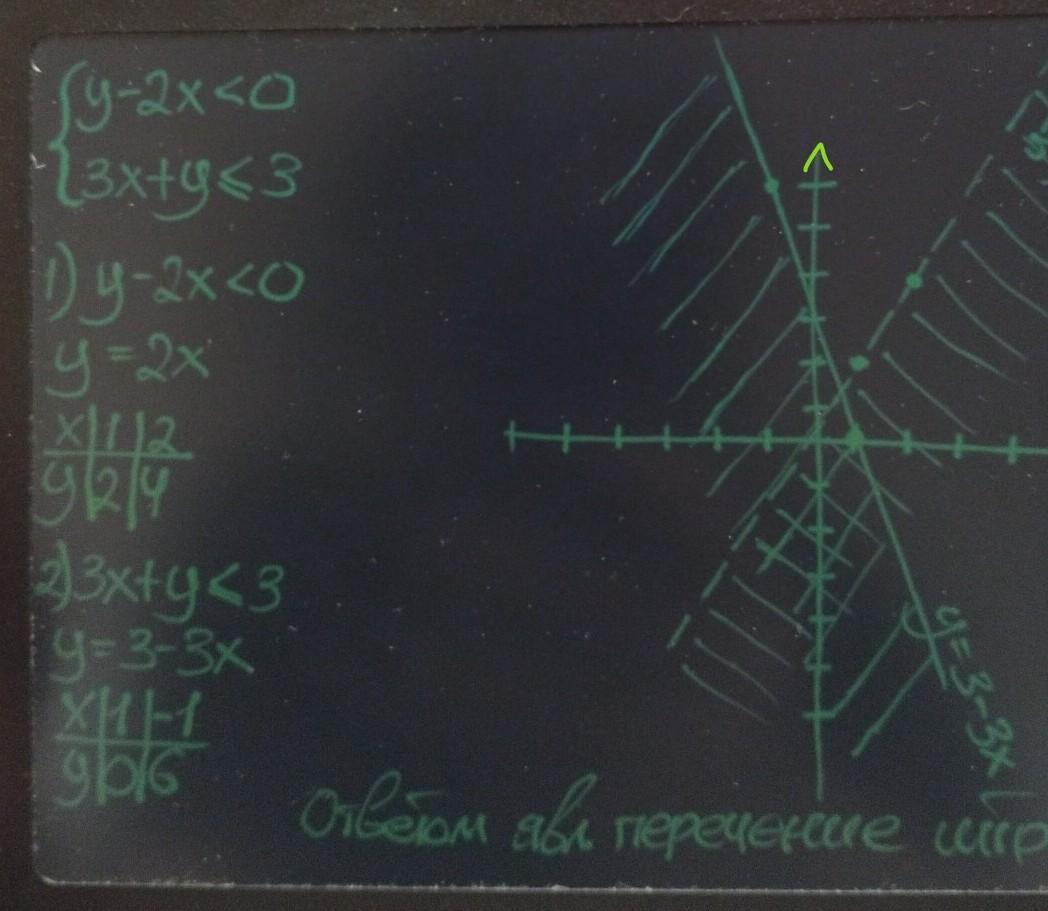 y-2x<0
3x+y≤3
1) y-2x<0
y=2x
x|1|2
y|2|4
2) 3x+y≤3
y=3-3x
x|1|-1
y|0|6
y=3-3x
Ответом явл. перечение штр